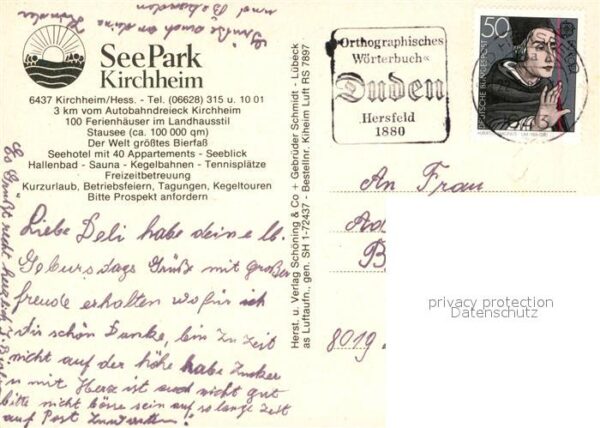 SeePark
Kirchheim
6437 Kirchheim/Hess. - Tel. (06628) 315 u. 10 01
3 km vom Autobahndreieck Kirchheim
100 Ferienhäuser im Landhausstil
Stausee (ca. 100 000 qm)
Der Welt größtes Bierfaß
Seehotel mit 40 Appartements - Seeblick
Hallenbad - Sauna - Kegelbahnen - Tennisplätze
Freizeitbetreuung
Kurzurlaub, Betriebsfeiern, Tagungen, Kegeltouren
Bitte Prospekt anfordern
Liebe Deli habe deine lb.
Geburtsdags Grüße mit großer
freude erhalten wofür ich
dir schön Danke, bin zu Zeit
nicht auf der höhe habe Zucker
n mit Herz ist auch nicht gut
bitte nicht böse sein auf so lange Zeit
auf Post
Es Grüßt recht herzlich
Grüße auch an deine Kinder
und Bekannten
Herst. u. Verlag Schöning & Co + Gebrüder Schmidt - Lübeck
as Luftaufn., gen. SH 1-72437 - Bestellnr. Kiheim Luft RS 7897
Orthographisches
Wörterbuch«
Duden
Hersfeld
1880
50
DEUTSCHE BUNDESPOST
An Frau
8019
privacy protection
Datenschutz